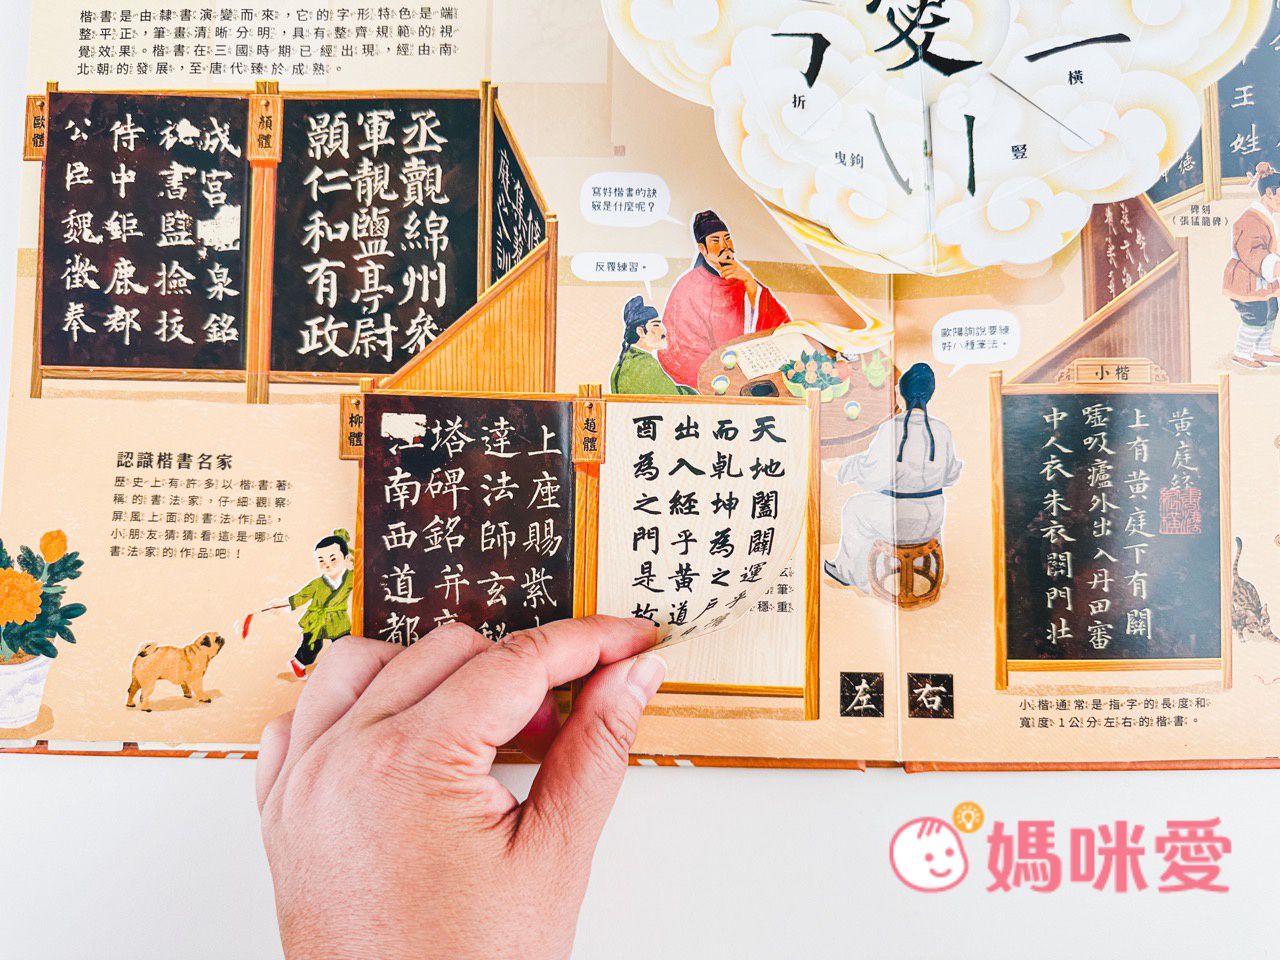 楷書是由隸書演變而來，它的字形特色是端
整平正，筆畫清晰分明，具有整齊規範的視
覺效果。楷書在三國時期已經出現，經由南
北朝的發展，至唐代臻於成熟。
歐體
成宮
泉銘
祕書監撿挍
侍中鉅鹿郡
公臣魏徵奉
顏體
丞覿綿州叅
軍靚鹽亭尉
顯仁和有政
折
橫
曳鉤
豎
王
姓
德
碑刻
（張猛龍碑）
寫好楷書的訣
竅是什麼呢？
反覆練習。
歐陽詢說要練
好八種筆法。
認識楷書名家
歷史上有許多以楷書著
稱的書法家，仔細觀察
屏風上面的書法作品，
小朋友猜猜看這是哪位
書法家的作品吧！
柳體
上座賜紫
達法師玄秘
塔碑銘并
江南西道都
趙體
天地闔闢運乎
而乹坤為之戶
出入經乎黃道
酉為之門是故
小楷
黃庭經
上有黃庭下有關
噓吸廬外出入丹田審
中人衣朱衣關門壯
左
右
小楷通常是指字的長度和
寬度1公分左右的楷書。
媽咪愛